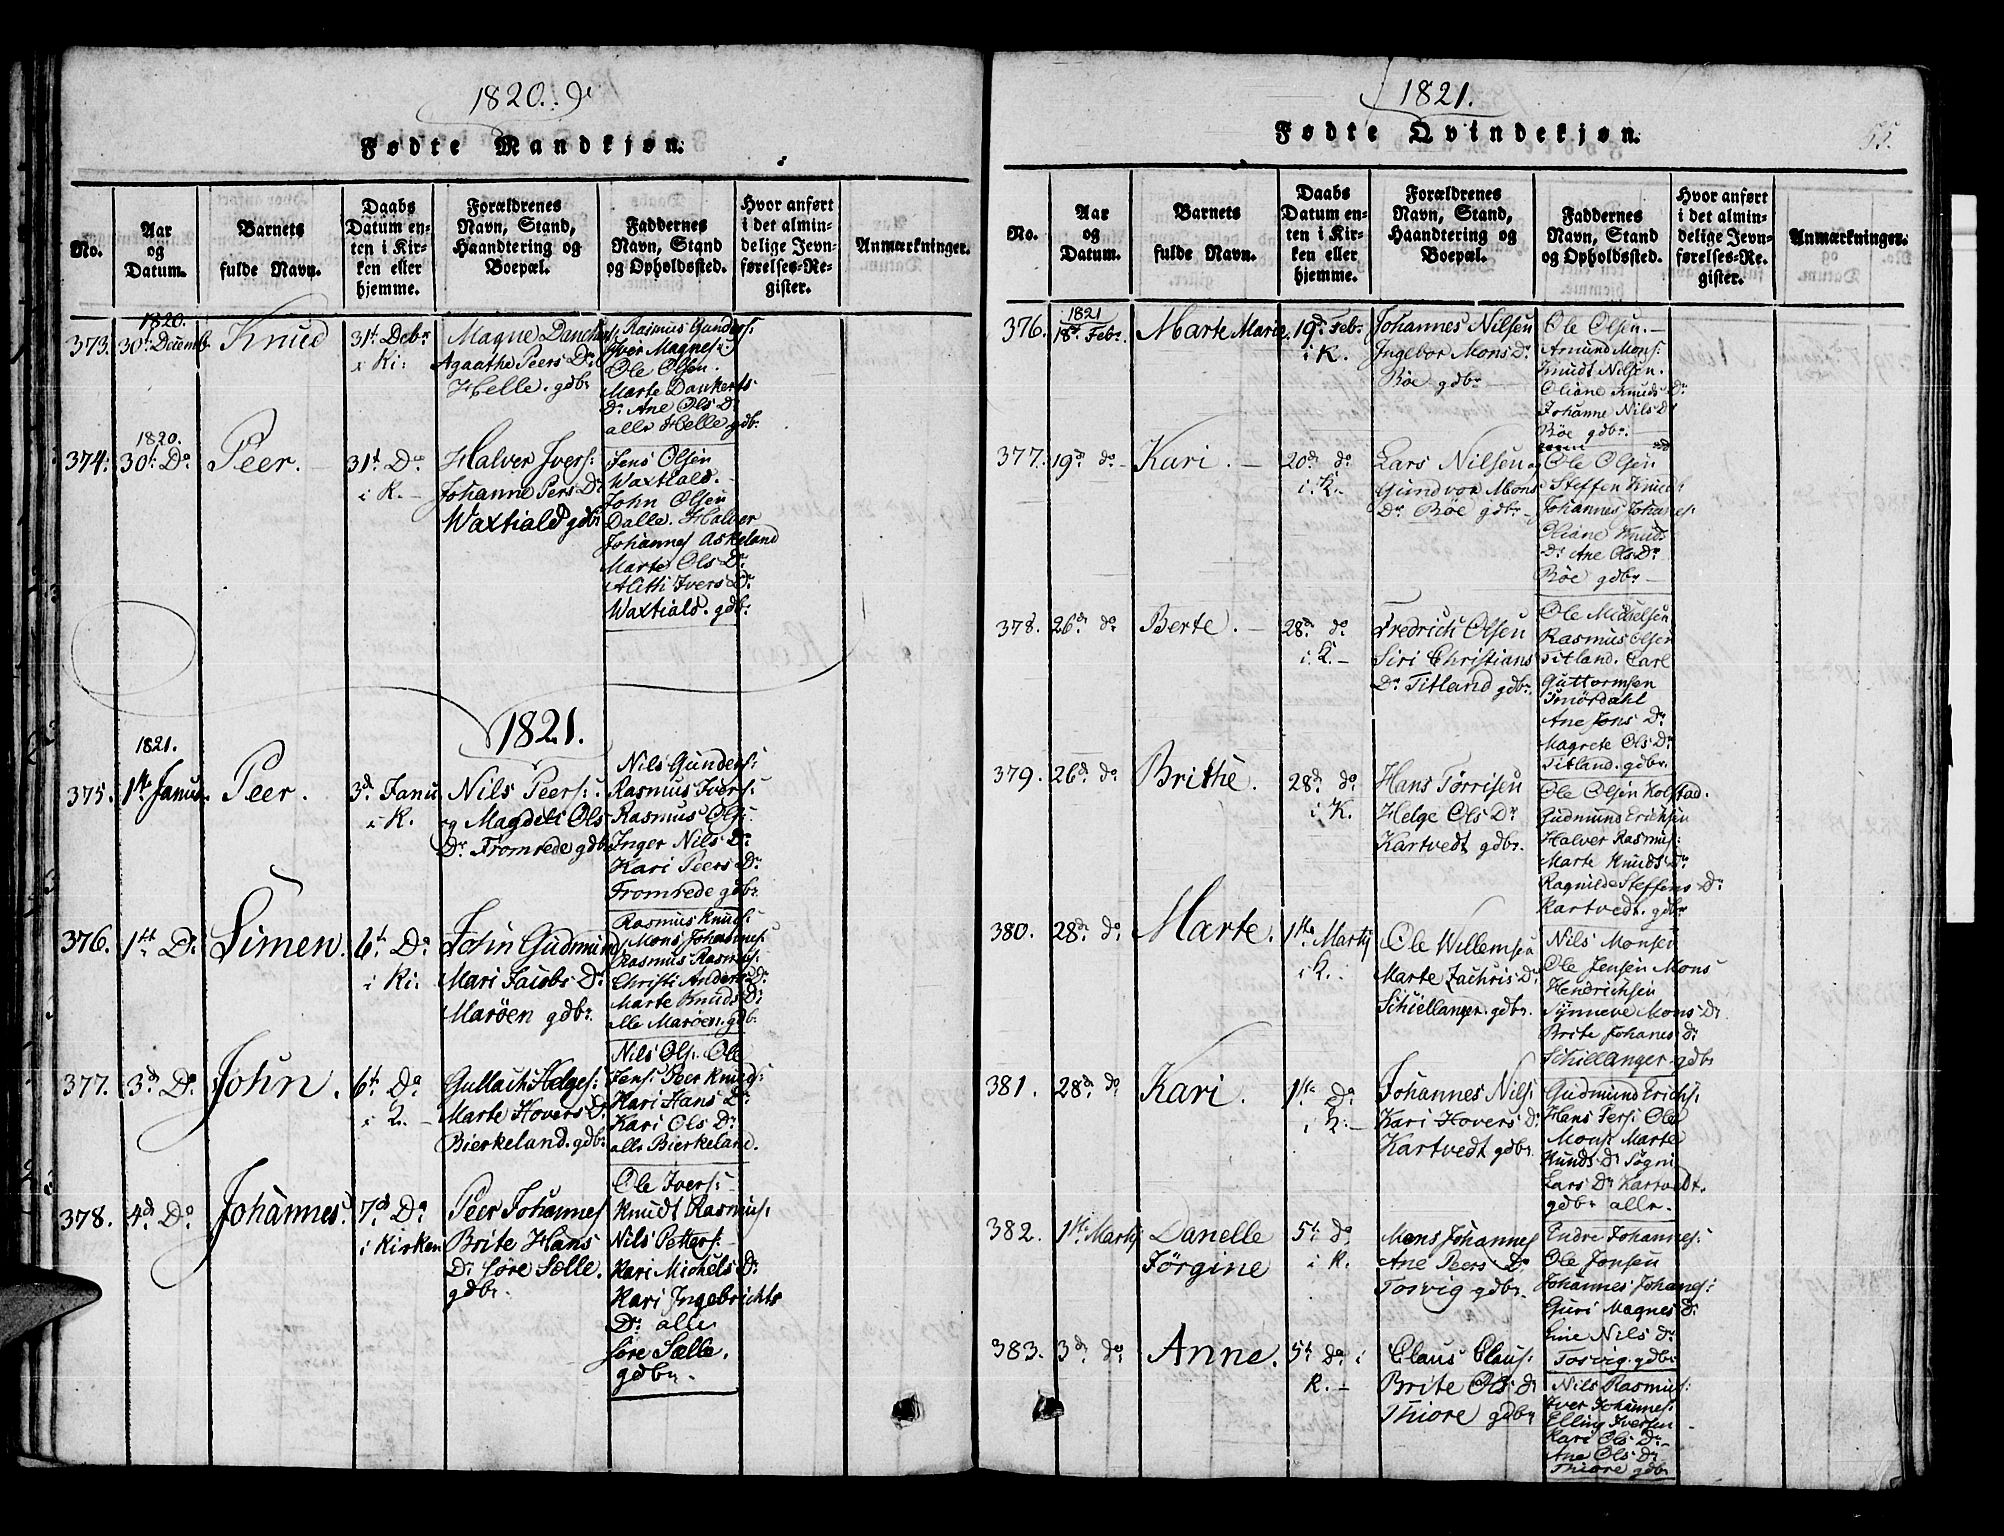 1820. d°
Fødte Mandkjøn.
No.
Aar og Datum.
Barnets fulde Navn.
Daabs Datum enten i Kirken eller hjemme.
Forældrenes Navn, Stand, Haandtering og Boepæl.
Faddernes Navn, Stand og Opholdssted.
Hvor anført i det almindelige Jevnførelses-Register.
Anmærkninger.
373.
1820.
30t Decemb.
Knud
31t Debr
i Ki:
Magne Danchers
Agaathe Peers Dr
Helle. gdbr
Rasmus Gunders:
Iver Magnes:
Ole Olsen.
Marte Dankerts
Dr Ane Ols Dr
alle Helle gdbr.
374.
1820.
30t Do
Peer.
31t Do
i K.
Halver Ivers:
Johanne Pers Dr
Waxtiald gdbr
Jens Olsen
Waxtiald.
John Olsen
Dalle. Halver
Johannes Askeland
Marte Ols Dr
Alith Ivers Dr
Waxtiald. gdbr.
1821.
375.
1821.
1ste Janua.
Peer.
3d Janu
i K.
Nils Peers:
og Magdeli Ols
Dr Fromrede gdbr
Nils Gunders:
Rasmus Ivers:
Rasmus Ols:
Inger Nils Dr
Kari Peers Dr
Fromrede gdbr.
376.
1ste Do
Simen.
6t Do
i Ki:
John Gudmund
Mari Jacobs Dr
Marøen gdbr.
Rasmus Knuds:
Mons Johannes:
Rasmus Rasmus:
Christi Anders Dr
Marte Knuds Dr
alle Marøen. gdbr.
377.
3d Do
John.
6t Do
i K.
Gullach Helges:
Marte Hovers Dr
Bierkeland. gdbr.
Nils Ols: Ole
Jens: Peer Knuds:
Mari Hans Dr
Kari Ols Dr
alle Bierkeland.
378.
4d Do
Johannes.
7d Do
i Kirken
Peer Johannes
Brite Hans
Dr Søre Sælle.
gdbr.
Ole Ivers:
Knudt Rasmus:
Nils Petters:
Kari Michels Dr
Kari Ingebrichts
Dr alle
Søre Sælle.
gdbr.
1821.
Fødte Qvindekjøn.
55.
No.
Aar og Datum.
Barnets fulde Navn.
Daabs Datum enten i Kirken eller hjemme.
Forældrenes Navn, Stand, Haandtering og Boepæl.
Faddernes Navn, Stand og Opholdssted.
Hvor anført i det almindelige Jevnførelses-Register.
Anmærkninger.
376.
1821
18d Febr.
Marte Marie.
19d Febr.
i K.
Johannes Nilsen
Ingebor Mons Dr
Bøe gdbr
Ole Olsen.
Amund Mons:
Knudt Nilsen.
Oliane Knuds Dr
Johanne Nils Dr
Bøe gdbr.
377.
19d do
Kari.
20d do
i K.
Lars Nilsen
Gundvor Mons
Dr Bøe gdbr.
Ole Olsen
Steffen Knuds:
Johannes Johanes:
Oliane Knuds
Dr Ane Ols Dr
Bøe gdbr
378.
26d do
Berte.
28d do
i K.
Fredrich Olsen
Siri Christians
Dr Titland gdbr.
Ole Michelsen
Rasmus Olsen
Titland. Carl
Guttormsen
Smørdahl
Ane Jons Dr
Magrete Ols Dr
Titland. gdbr.
379.
26d do
Brithe.
28d do
i K.
Hans Torrisen
Helge Ols Dr
Kartvedt gdbr.
Ole Olsen Kolstad.
Gudmund Erichsen
Halver Rasmus:
Marte Knudts Dr
Ragnilde Steffens Dr
Kartvedt. gdbr
380.
28d do
Marte.
1ste Martij
i K.
Ole Willemsen
Marte Zachris Dr
Schiellanger. gdbr.
Nils Monsen
Ole Jensen Mons
Hendrichsen
Synneve Mons Dr
Brite Johanes Dr
Schiellanger. gdbr
381.
28d do
Kari.
1ste Do
i K.
Johannes Nils:
Kari Hovers Dr
Kartvedt gdbr.
Gudmund Erichs:
Hans Pers: Ole
Mons: Marte
Knuds Dr Søgni
Lars Dr Kartvedt.
gdbr alle.
382.
1ste Martij
Danelle
Jørgine
5t do
i K.
Mons Johannes
Ane Peers Dr
Tosvig gdbr.
Endre Johannes:
Ole Jonsen
Johannes Johanes:
Guri Magnes Dr
Line Nils Dr
Tosvig. gdbr
383.
3d do
Anne.
5t do i
K.
Claus Claus:
Brite Ols Dr
Thiore gdbr
Nils Rasmus:
Iver Johannes:
Elling Iversen
Kari Ols Dr
Ane Ols Dr
Thiore gdbr